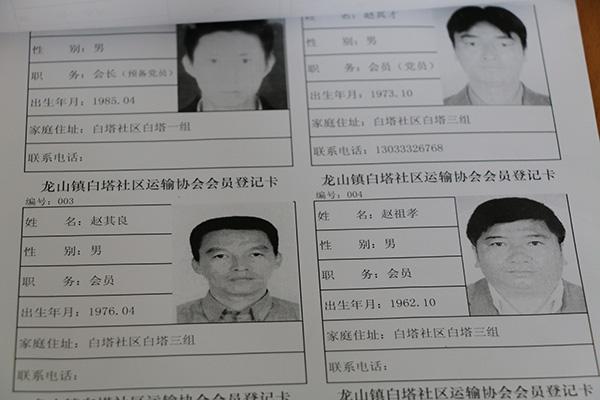 性 别：男
职 务：会长（预备党员）
出生年月：1985.04
家庭住址：白塔社区白塔一组
联系电话：
姓 名：赵其才
性 别：男
职 务：会员（党员）
出生年月：1973.10
家庭住址：白塔社区白塔三组
联系电话：13033326768
龙山镇白塔社区运输协会会员登记卡
编号：003
姓 名：赵其良
性 别：男
职 务：会员
出生年月：1976.04
家庭住址：白塔社区白塔三组
联系电话：
龙山镇白塔社区运输协会会员登记卡
编号：004
姓 名：赵祖孝
性 别：男
职 务：会员
出生年月：1962.10
家庭住址：白塔社区白塔三组
联系电话：
龙山镇白塔社区运输协会会员登记卡
龙山镇白塔社区运输协会会员登记卡